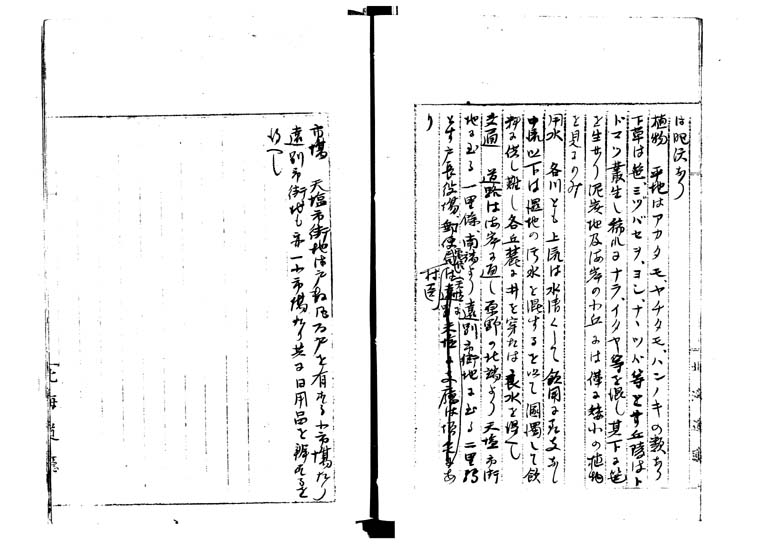 は肥沃なり
植物 平地はアカタモヤチタモ、ハンノキの類あり
下草は笹ミツバセヲ、ヨシ、ナ、ツバ等とす丘陵はト
ドマツ叢生し稀れにナラ、イタヤ等を混し其下に笹
を生せり泥炭地及海岸の小丘には僅に矮小の植物
を見るのみ
用水 各川とも上流は水清くして飲用に差支なし
中流以下は湿地の汚水を混するを以て溷濁して飲
料に供し難し各丘麓に井を穿たは良水を得へし
交通 道路は海岸に通し原野の北端より天塩市街
地に至る一里餘、南端より遠別市街地に至る二里餘
とす戸長役場、郵便局は
り
村医
市場 天塩市街地は戸数凡 戸を有する小市場なり
遠別市街地も亦一小市場なり共に日用品を辨するを
得へし
北海道廳
北海道廳